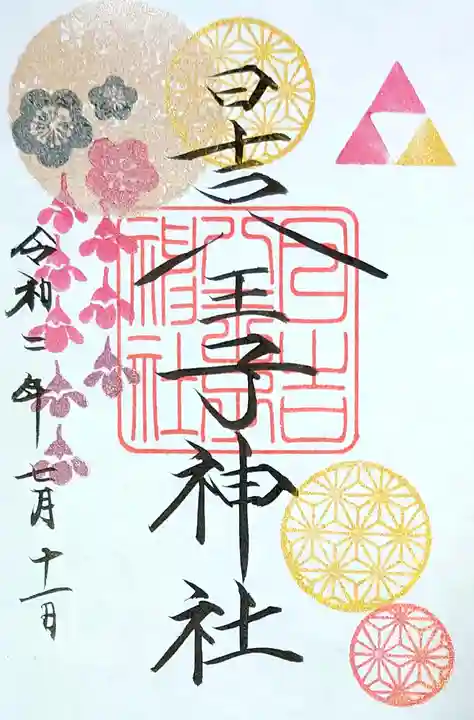 日吉八王子神社
日吉
八王子
神社
令和三年
七月十一日